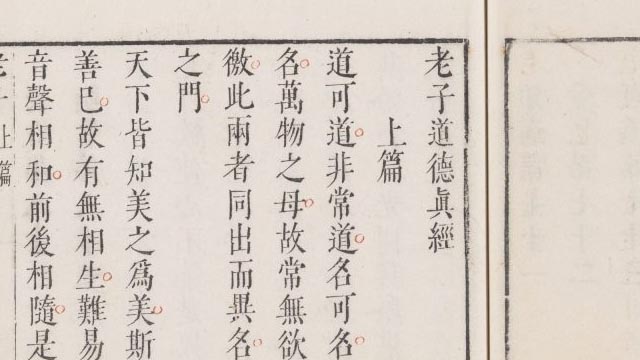 老子道德眞經
上篇
道可道。非常道。名可名。
名。萬物之母。故常無欲
徼。此兩者同出而異名。
之門。
天下皆知美之爲美。斯
善已。故有無相生。難易
音聲相和。前後相隨。是
老子上篇